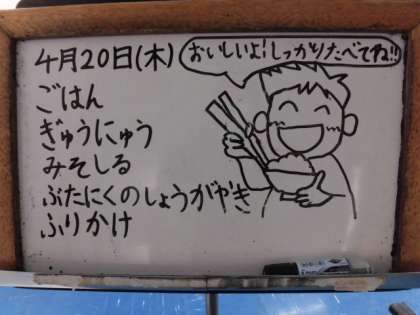 4月20日(木)
おいしいよ!しっかりたべてね!!
ごはん
ぎゅうにゅう
みそしる
ぶたにくのしょうがやき
ふりかけ